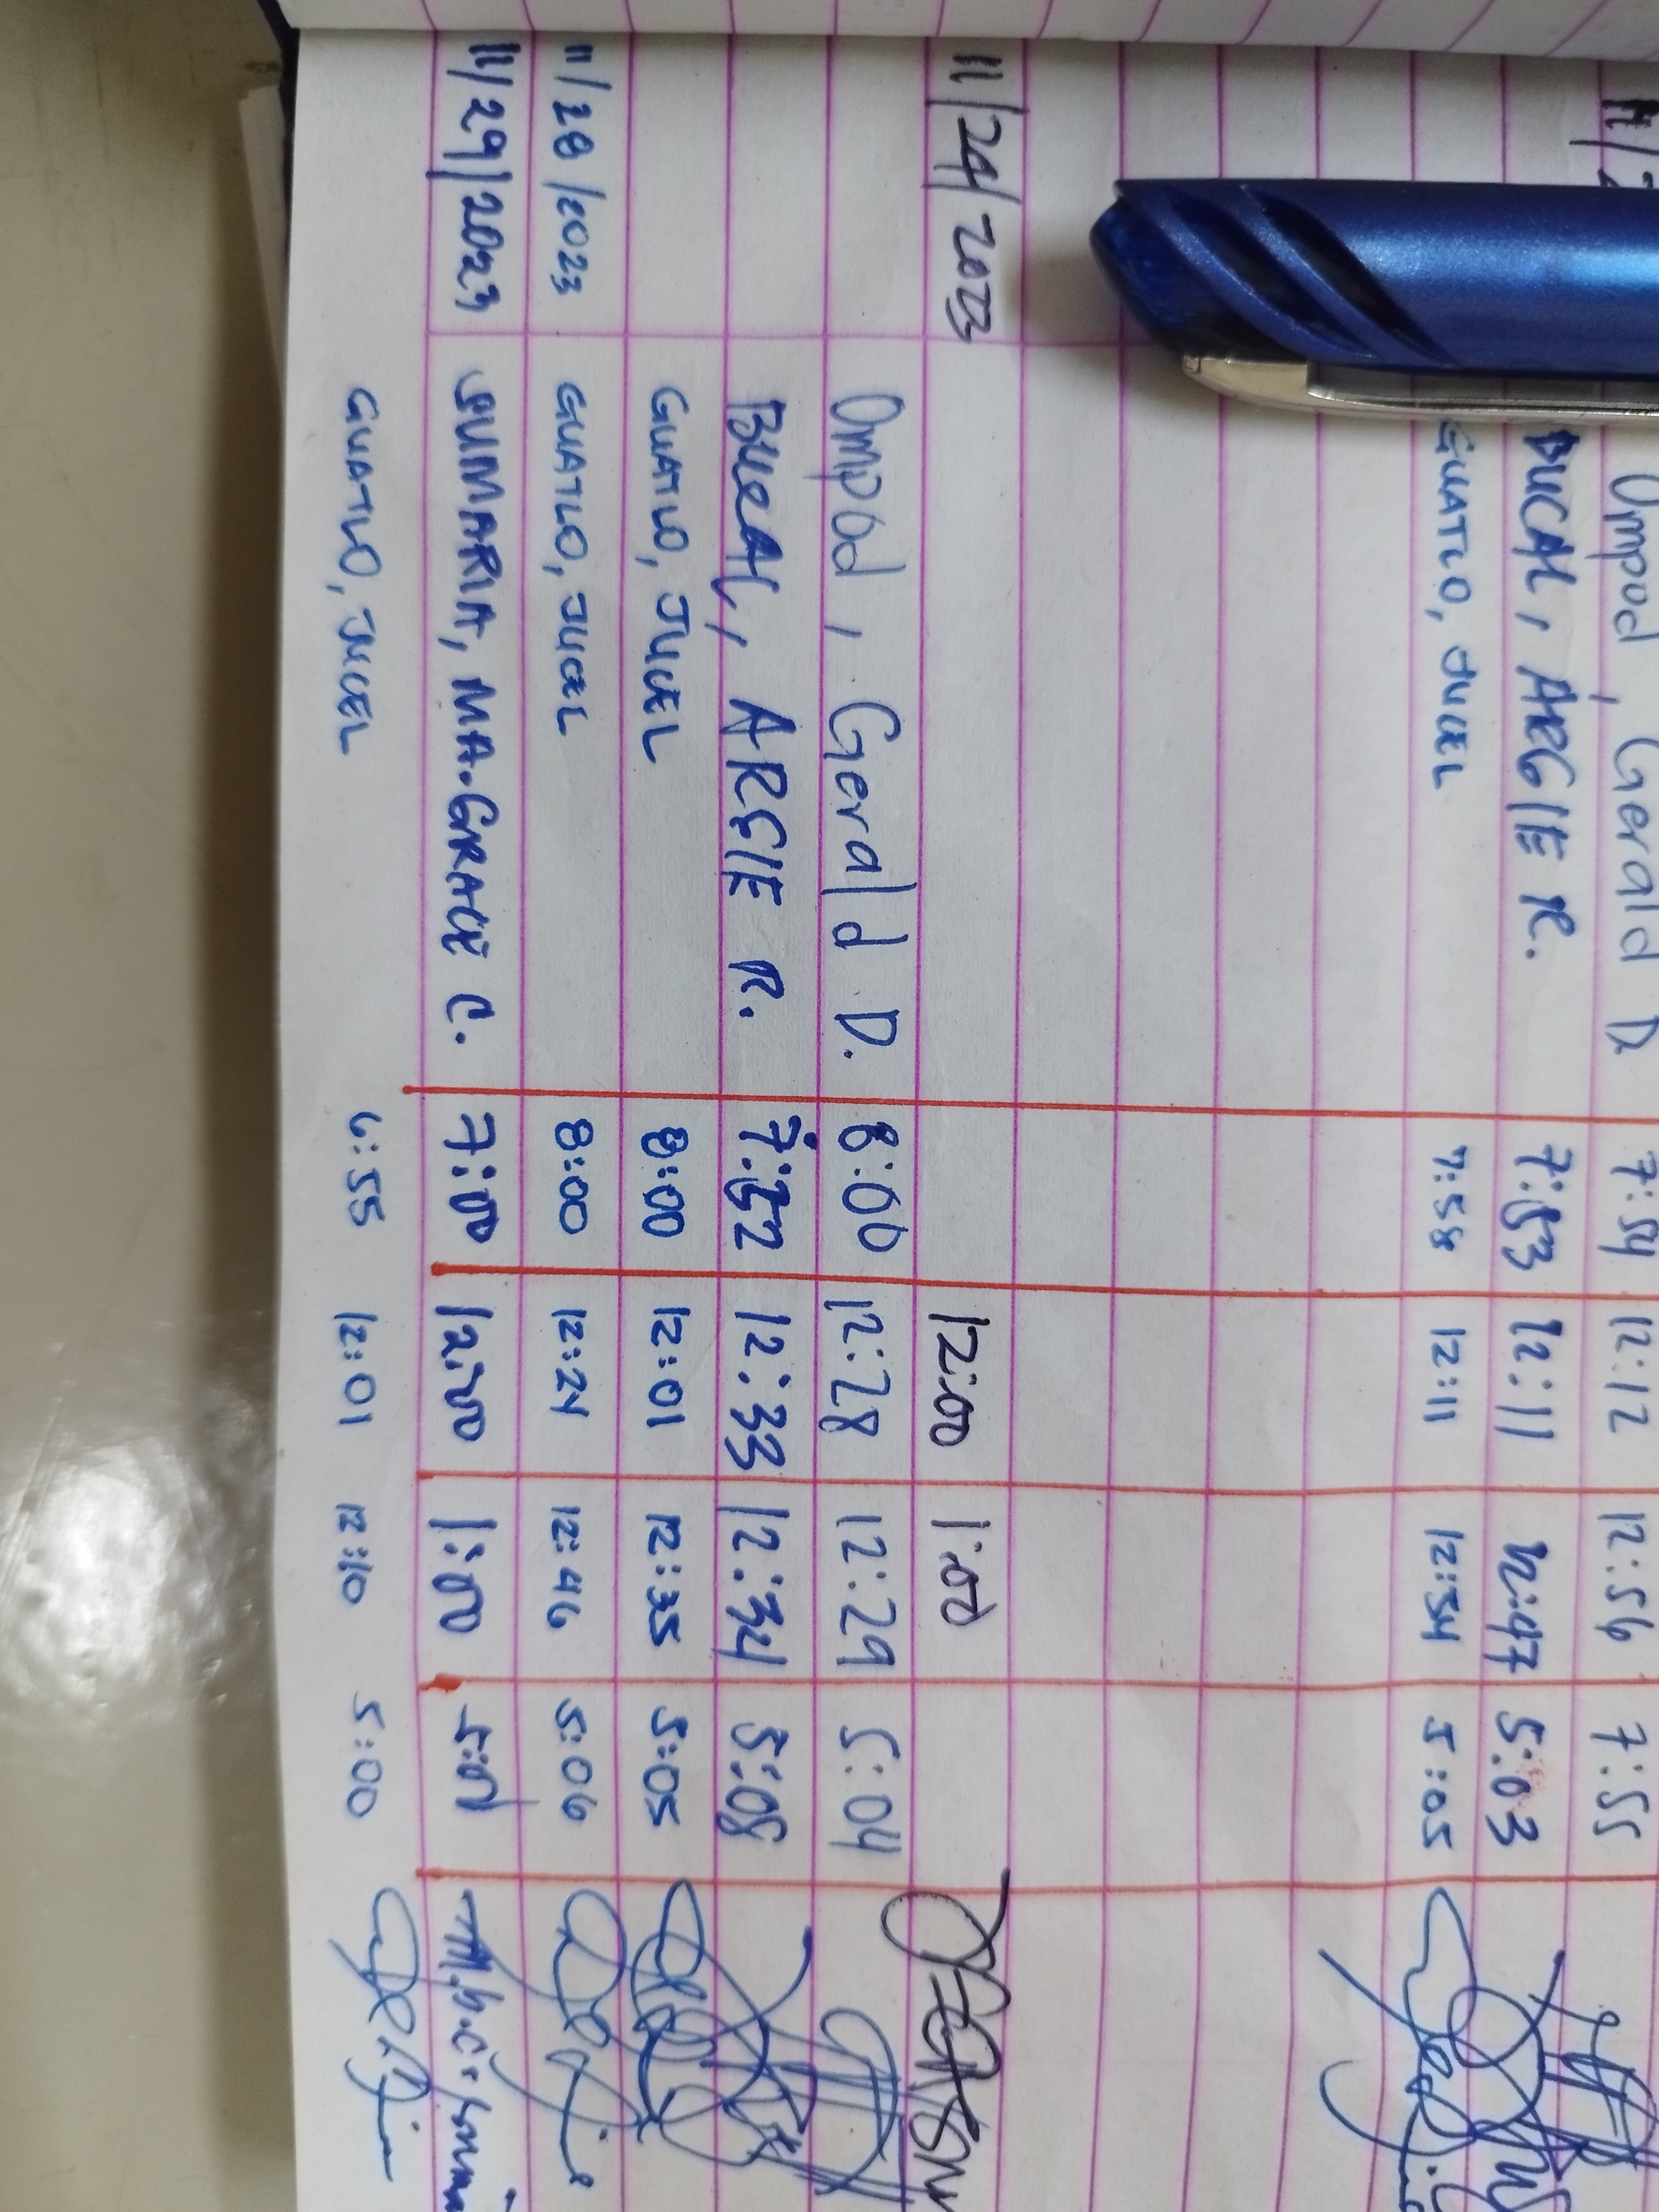 Ompod, Gerald D 7:54 12:12 12:56 7:55
DUCAL, ARGIE R. 7:53 12:11 12:47 5:03
GUATLO, JUCEL 7:58 12:11 12:54 5:05
11/24/2023 12:00 1:00
Ompod, Gerald D. 8:00 12:28 12:29 5:04
DUCAL, ARGIE R. 7:52 12:33 12:34 5:08
GUATLO, JUCEL 8:00 12:01 12:35 5:05
11/28/2023 GUATLO, JUCEL 8:00 12:24 12:46 5:06
11/29/2023 SUMARIA, MA. GRACE C. 7:00 12:00 1:00
GUATLO, JUCEL 6:55 12:01 12:10 5:00